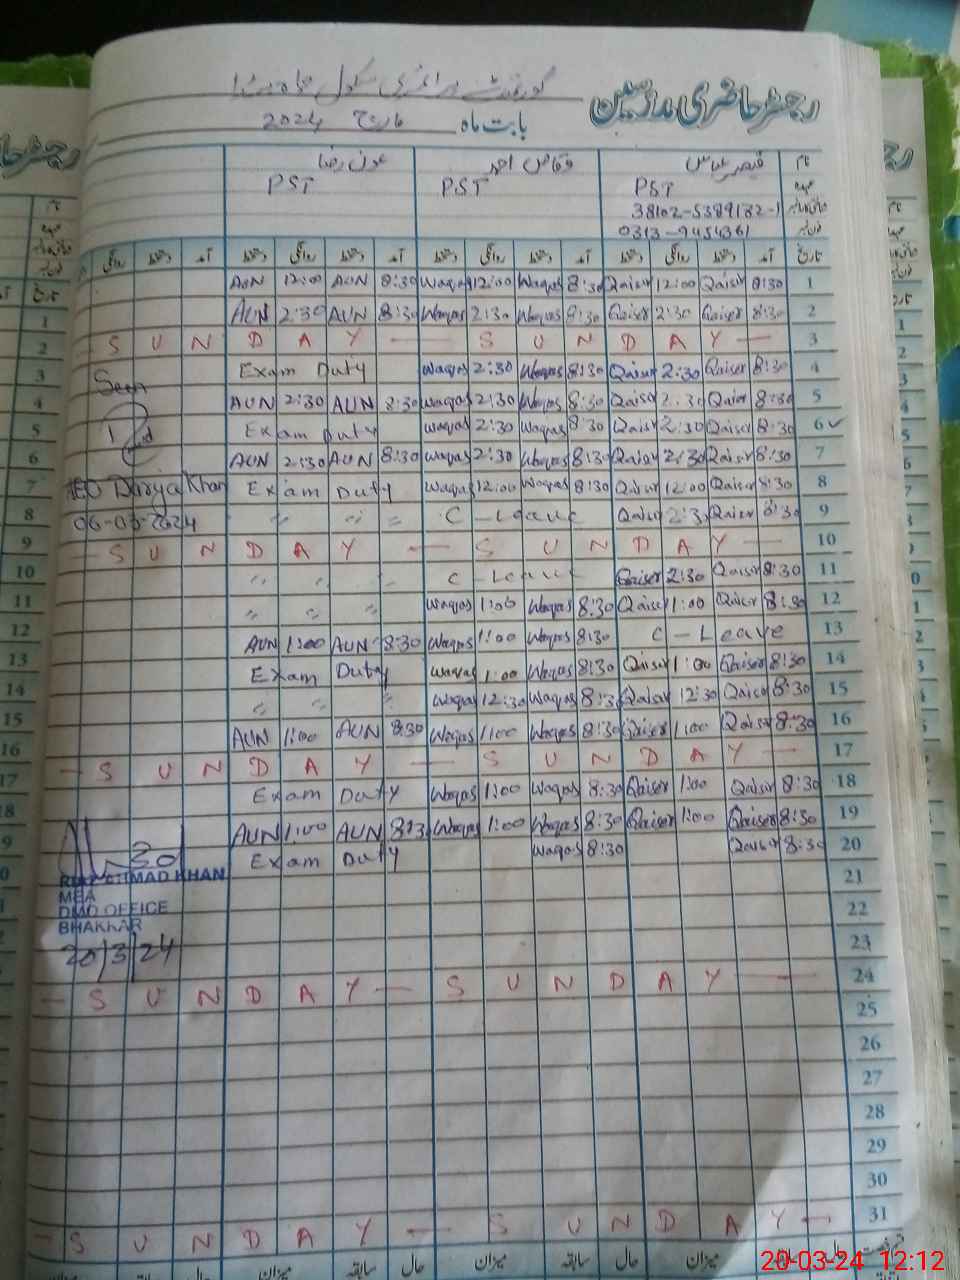 رجسٹر حاضری مدرسین
گورنمنٹ پرائمری سکول
بابت ماہ مارچ 2024
نام قیصر عباس وقاص احمد عون رضا
عہدہ PST PST PST
38102-5389132-1
0313-9454361
تاریخ آمد دستخط روانگی دستخط آمد دستخط روانگی دستخط آمد دستخط روانگی دستخط آمد دستخط روانگی
AUN 12:00 AUN 8:30 Waqas 12:00 Waqas 8:30 Qaiser 12:00 Qaiser 8:30 1
AUN 2:30 AUN 8:30 Waqas 2:30 Waqas 8:30 Qaiser 2:30 Qaiser 8:30 2
- S U N D A Y - S U N D A Y - 3
Exam Duty Waqas 2:30 Waqas 8:30 Qaiser 2:30 Qaiser 8:30 4
Seen
AUN 2:30 AUN 8:30 Waqas 2:30 Waqas 8:30 Qaiser 2:30 Qaiser 8:30 5
Exam Duty Waqas 2:30 Waqas 8:30 Qaiser 2:30 Qaiser 8:30 6
AUN 2:30 AUN 8:30 Waqas 2:30 Waqas 8:30 Qaiser 2:30 Qaiser 8:30 7
AEO Darya Khan Exam Duty Waqas 12:00 Waqas 8:30 Qaiser 12:00 Qaiser 8:30 8
06-03-2024 " " " C - Leave Qaiser 2:30 Qaiser 8:30 9
- S U N D A Y - S U N D A Y - 10
" " " C - Leave Qaiser 2:30 Qaiser 8:30 11
" " " Waqas 1:00 Waqas 8:30 Qaiser 1:00 Qaiser 8:30 12
AUN 1:00 AUN 8:30 Waqas 1:00 Waqas 8:30 C - Leave 13
Exam Duty Waqas 1:00 Waqas 8:30 Qaiser 1:00 Qaiser 8:30 14
" " " Waqas 12:30 Waqas 8:30 Qaiser 12:30 Qaiser 8:30 15
AUN 1:00 AUN 8:30 Waqas 1:00 Waqas 8:30 Qaiser 1:00 Qaiser 8:30 16
- S U N D A Y - S U N D A Y - 17
Exam Duty Waqas 1:00 Waqas 8:30 Qaiser 1:00 Qaiser 8:30 18
AUN 1:00 AUN 8:3 Waqas 1:00 Waqas 8:30 Qaiser 1:00 Qaiser 8:30 19
Exam Duty Waqas 8:30 Qaiser 8:30 20
AHMAD KHAN 21
MEA
DMO OFFICE 22
BHAKKAR
20/3/24 23
- S U N D A Y - S U N D A Y - 24
25
26
27
28
29
30
31
- S U N D A Y - S U N D A Y -
حال سابقہ میزان حال سابقہ میزان حال سابقہ میزان
20-03-24 12:12